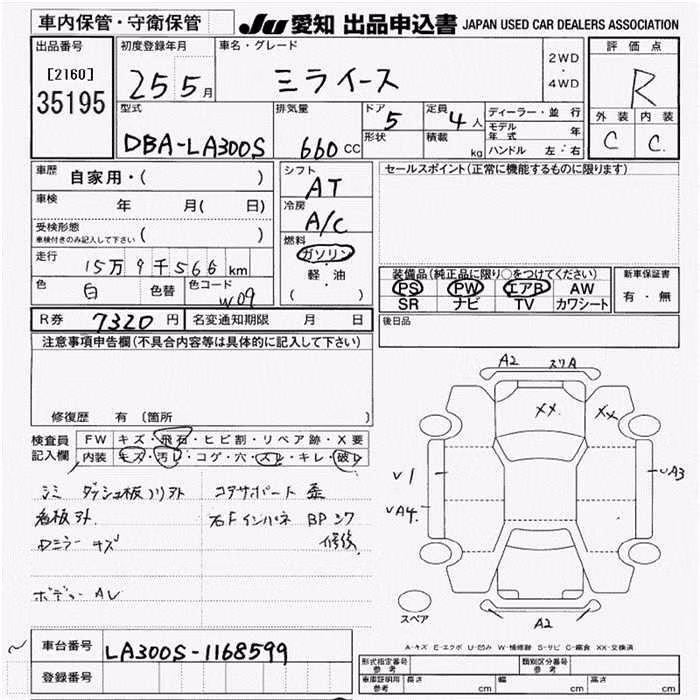 車内保管・守衛保管
JU 愛知 出品申込書 JAPAN USED CAR DEALERS ASSOCIATION
出品番号
[2160]
35195
初度登録年月
25 5月
車名・グレード
ミライース
2WD
・
4WD
評価点
R
外装 内装
C C
型式
DBA-LA300S
排気量
660 CC
ドア 5
形状
定員 4人
積載 kg
ディーラー・並行
モデル年式 年
ハンドル 左・右
車歴 自家用・( )
車検 年 月( 日)
受検形態
車検付きのみ記入して下さい ( )
走行 15万9千566km
色 白 色替 色コード W09
シフト
AT
冷房
A/C
燃料
ガソリン
・
軽・油
( )
セールスポイント(正常に機能するものに限ります)
装備品(純正品に限り○をつけてください)
PS PW エアB AW
SR ナビ TV カワシート
新車保証書
有・無
R券 7320円 名変通知期限 月 日
後日品
注意事項申告欄(不具合内容等は具体的に記入して下さい)
修復歴 有〔箇所 〕
検査員
記入欄
FW キズ・飛石・ヒビ割・リペア跡・X要
内装 キズ・汚レ・コゲ・穴・スレ・キレ・破レ
シミ ダッシュ板ノリ外 コアサポート
看板外 右Fインパネ BP
ロミラー キズ 修復
ボデー AU
A2 スリA
XX XX
V1
UA4
UA3
スペア
A2
A-キズ E-エクボ U-凹み W-補修跡 S-サビ C-腐食 XX-交換済
車台番号 LA300S-1168599
登録番号
形式指定番号
参考
類別区分番号
参考
車庫証明用
参考
長さ cm 幅 cm 高さ cm